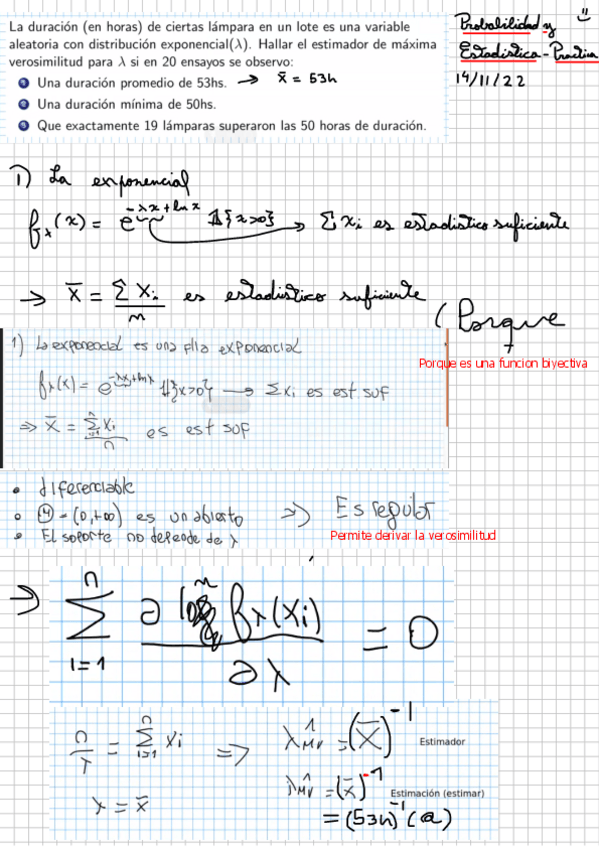 La duración (en horas) de ciertas lámpara en un lote es una variable
aleatoria con distribución exponencial(λ). Hallar el estimador de máxima
verosimilitud para λ si en 20 ensayos se observo:
1 Una duración promedio de 53hs. → x̄ = 53h
2 Una duración mínima de 50hs.
3 Que exactamente 19 lámparas superaron las 50 horas de duración.
Probabilidad y
Estadística - Practica
14/11/22
1) La exponencial
fₓ(x) = e^(-λx + ln x) 1{x>0} → Σxi es estadistico suficiente
→ X̄ = ΣXi/n es estadistico suficiente (Porque
1) La exponencial es una flia exponencial
Porque es una funcion biyectiva
fλ(x) = e^(-λx + lnλ) 1{x>0} → Σxi es est suf
⇒ X̄ = Σ(i=1, n) Xi / n es est suf
• diferenciable
• Ⓗ = (0,+∞) es un abierto ⇒ Es regular
• El soporte no depende de λ
Permite derivar la verosimilitud
⇒ Σ(i=1, n) ∂ ln fλ(Xi) / ∂λ = 0
n/λ = Σ(i=1, n) Xi ⇒ λ̂MV = (X̄)^-1 Estimador
λ = x̄ λ̂MV = (x̄)^-1 Estimación (estimar)
= (53h)^-1 (a)